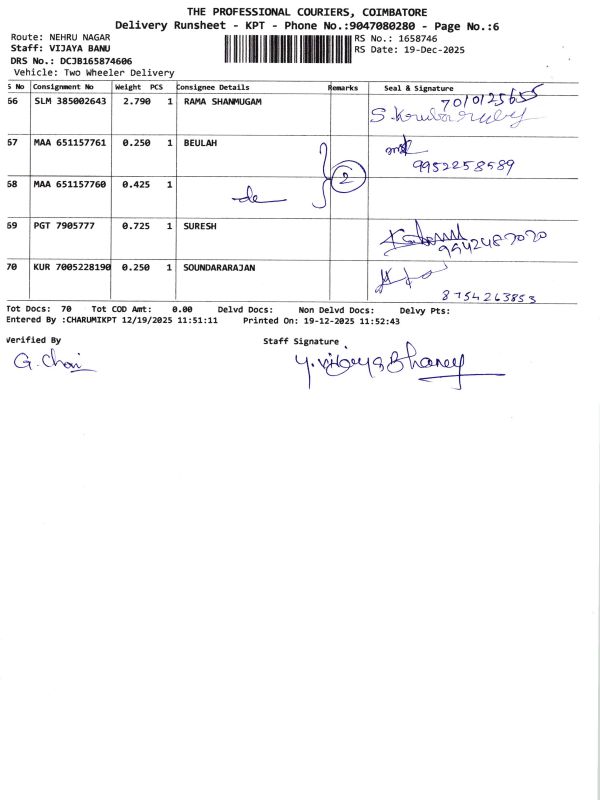 THE PROFESSIONAL COURIERS, COIMBATORE
Delivery Runsheet - KPT - Phone No.:9047080280 - Page No.:6
Route: NEHRU NAGAR
Staff: VIJAYA BANU
DRS No.: DCJB165874606
Vehicle: Two Wheeler Delivery
RS No.: 1658746
RS Date: 19-Dec-2025
S No Consignment No Weight PCS Consignee Details Remarks Seal & Signature
66 SLM 385002643 2.790 1 RAMA SHANMUGAM
67 MAA 651157761 0.250 1 BEULAH 2 9952258589
68 MAA 651157760 0.425 1
69 PGT 7905777 0.725 1 SURESH
70 KUR 7005228190 0.250 1 SOUNDARARAJAN 8754263853
Tot Docs: 70 Tot COD Amt: 0.00 Delvd Docs: Non Delvd Docs: Delvy Pts:
Entered By :CHARUMIKPT 12/19/2025 11:51:11 Printed On: 19-12-2025 11:52:43
Verified By Staff Signature